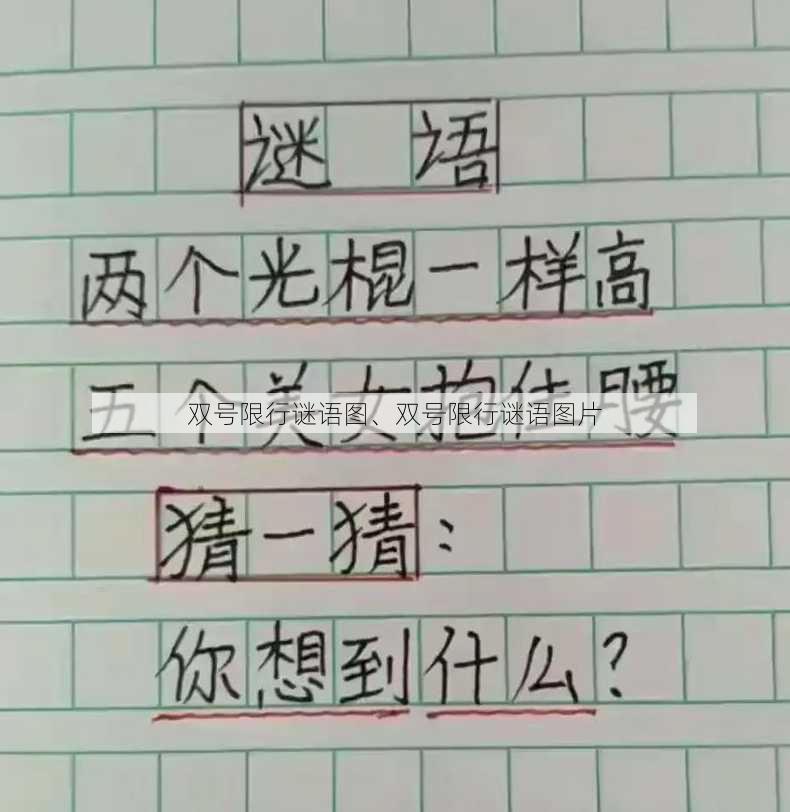 谜 语
两个光棍一样高
五个美女抱住腰
双号限行谜语图、双号限行谜语图片
猜一猜：
你想到什么？